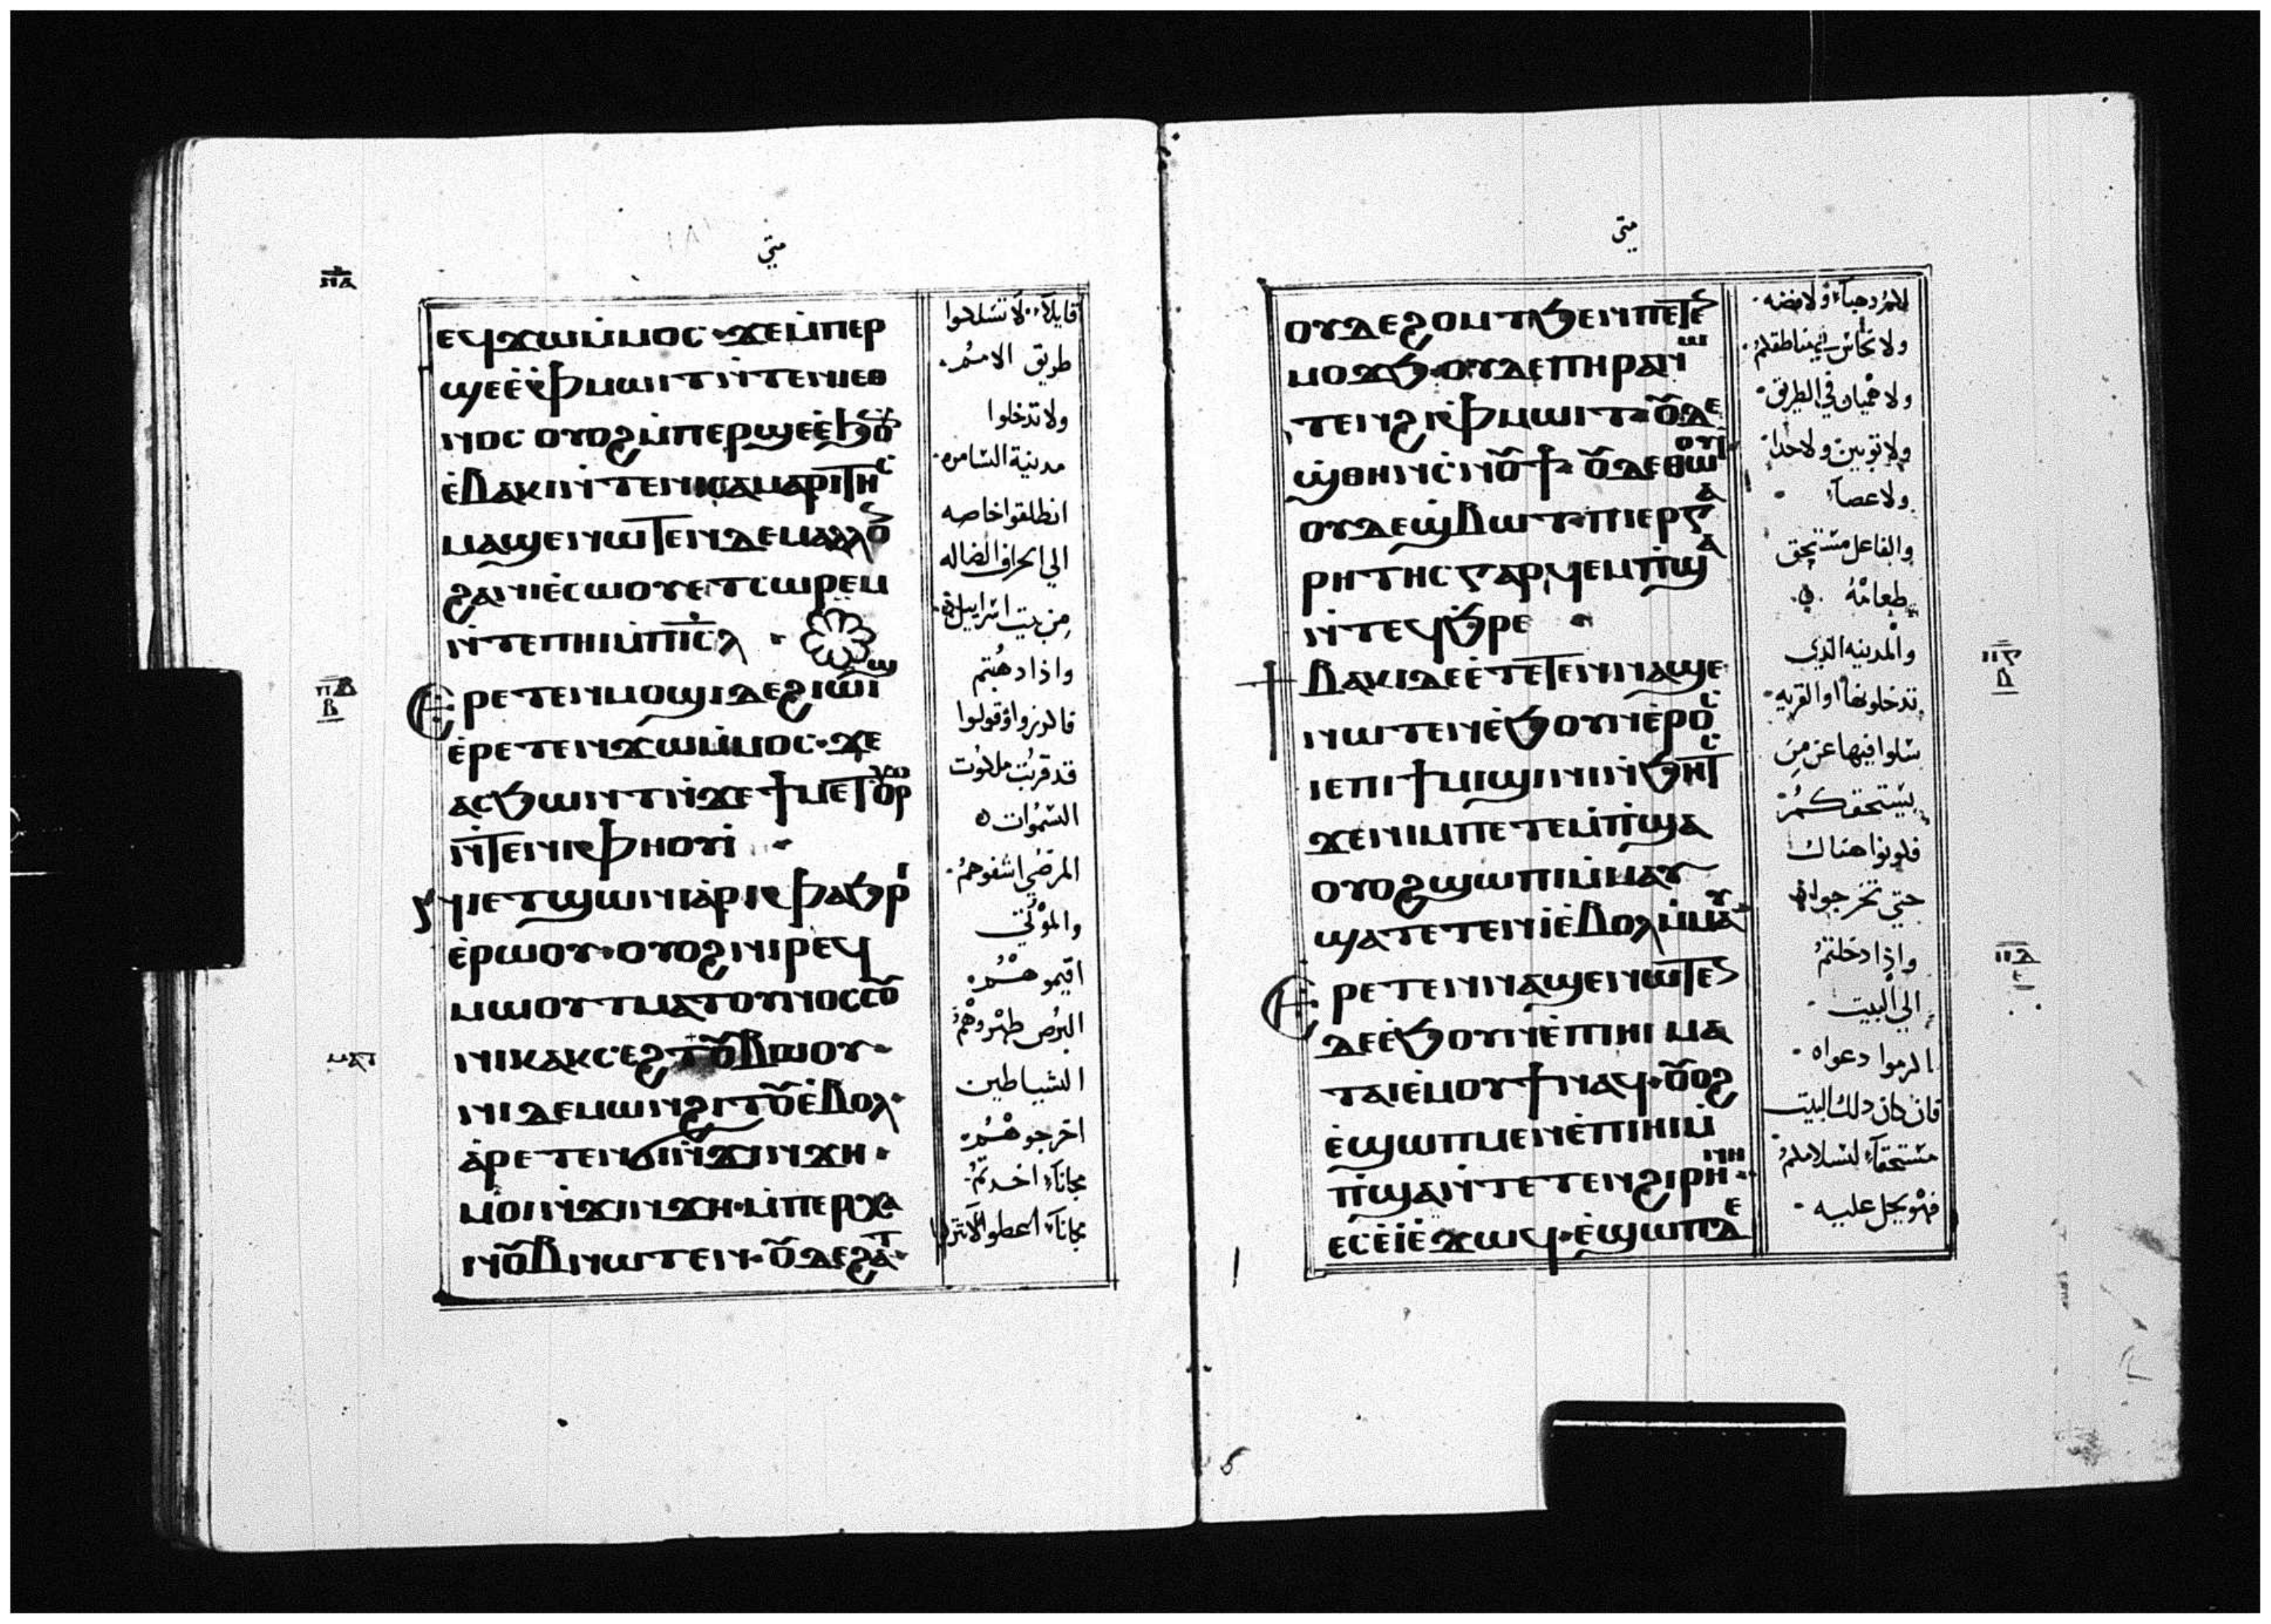 متى
ⲉϥϫⲱⲙ̀ⲙⲟⲥ · ϫⲉⲙ̀ⲡⲉⲣ
ϣⲉⲉ̀ⲫⲙⲱⲓⲧⲛ̀ⲧⲉⲛⲓⲉⲑ
ⲛⲟⲥ ⲟⲩⲟϩⲙ̀ⲡⲉⲣϣⲉⲉ̀ϧⲟ̅ⲛ
ⲉ̀ⲃⲁⲕⲓⲛ̀ⲧⲉⲛⲓⲥⲁⲙⲁⲣⲓⲧⲏⲥ
ⲙⲁϣⲉⲛⲱⲧⲉⲛⲇⲉⲙⲁⲗⲗⲟ
ϩⲁⲛⲓⲉ̀ⲥⲱⲟⲩⲉⲧⲥⲱⲣⲉⲙ
ⲛ̀ⲧⲉⲡⲏⲓⲙ̀ⲡⲓⲥ̅ⲗ ·
ⲉⲣⲉⲧⲉⲛⲙⲟϣⲓⲇⲉϩⲓⲱⲓϣ
ⲉ̀ⲣⲉⲧⲉⲛϫⲱⲙ̀ⲙⲟⲥ · ϫⲉ
ⲁⲥϧⲱⲛⲧⲛ̀ϫⲉϯⲙⲉⲧⲟⲩⲣⲟ
ⲛ̀ⲧⲉⲛⲓⲫⲏⲟⲩⲓ̀
ⲛⲏⲉⲧϣⲱⲛⲓⲁ̀ⲣⲓⲫⲁϧⲣⲓ
ⲉ̀ⲣⲱⲟⲩ · ⲟⲩⲟϩⲛⲓⲣⲉϥ
ⲙⲱⲟⲩⲧⲙⲁⲧⲟⲩⲛⲟⲥⲟ̅ⲩ
ⲛⲓⲕⲁⲕⲥⲉϩⲧⲟ̅ⲩⲃⲱⲟⲩ ·
ⲛⲓⲇⲉⲙⲱⲛϩⲓⲧⲟ̅ⲩⲉ̀ⲃⲟⲗ ·
ⲁ̀ⲣⲉⲧⲉⲛϭⲓⲛ̀ϫⲓⲛϫⲏ ·
ⲙⲟⲓⲛ̀ϫⲓⲛϫⲏ · ⲙ̀ⲡⲉⲣⲭⲁ
ⲛⲟ̅ⲩⲃⲛⲱⲧⲉⲛ · ⲟ̅ⲩⲇⲉϩⲁⲧ ·
قايلاً لا تسلكوا
طريق الامم ·
ولا تدخلوا
مدينة السامره ·
انطلقوا خاصه
الي الخراف الضاله
من بيت اسراييل
واذا ذهبتم
فاكرزوا وقولوا
قد قربت ملكوت
السموات
المرضي اشفوهم ·
والموتي
اقيموهم
البرص طهروهم
الشياطين
اخرجوهم
مجاناً اخدتم
مجاناً اعطوا
ⲡⲃ
ⲃ
متى
ⲟⲩⲇⲉϩⲟⲙⲧϧⲉⲛⲛⲉⲧⲉⲛ
ⲙⲟϫϧ · ⲟⲩⲇⲉⲡⲏⲣⲁⲛⲱ
ⲧⲉⲛϩⲓⲫⲙⲱⲓⲧ · ⲟ̅ⲩⲇⲉ
ϣ̀ⲑⲏⲛⲥ̀ⲛⲟ̅ⲩϯ · ⲟ̅ⲩⲇⲉⲑⲱⲟⲩⲓ
ⲟⲩⲇⲉϣ̀ⲃⲱⲧ · ⲡⲓⲉⲣⲅⲁ
ⲣⲏⲧⲏⲥⲅⲁⲣϥⲉⲙⲡ̀ϣⲁ
ⲛ̀ⲧⲉϥϧ̀ⲣⲉ
ϯⲃⲁⲕⲓⲇⲉⲉ̀ⲧⲉⲧⲉⲛⲛⲁϣⲉ
ⲛⲱⲧⲉⲛⲉ̀ϧⲟⲩⲛⲉ̀ⲣⲟⲥ
ⲓⲉⲡⲓϯⲙⲓϣⲓⲛⲓⲛ̀ϧⲏⲧⲥ
ϫⲉⲛⲓⲙⲡⲉⲧⲉⲙ̀ⲡ̀ϣⲁ
ⲟⲩⲟϩϣⲱⲡⲓⲙ̀ⲙⲁⲩ
ϣⲁⲧⲉⲧⲉⲛⲓ̀ⲉ̀ⲃⲟⲗⲙ̀ⲙⲁⲩ
ⲉⲣⲉⲧⲉⲛⲛⲁϣⲉⲛⲱⲧⲉⲛ
ⲇⲉⲉ̀ϧⲟⲩⲛⲉ̀ⲡⲓⲏⲓ ⲙⲁ
ⲧⲁⲓⲉⲙⲟⲩϯⲛⲁϥ · ⲟ̅ⲩⲟϩ
ⲉ̀ϣⲱⲡⲙⲉⲛⲉ̀ⲡⲓⲏⲓⲙ̀
ⲡ̀ϣⲁⲛ̀ⲧⲉⲧⲉⲛϩⲓⲣⲏⲛⲏ ·
ⲉⲥⲉ̀ⲓ̀ⲉ̀ϫⲱϥ · ⲉ̀ϣⲱⲡⲇⲉ
ولا نحاس في مناطقكم ·
ولا هميان في الطريق ·
ولا ثوبين ولا حدا
ولا عصا ·
والفاعل مستحق
طعامه
والمدينه الذي
تدخلونها او القريه ·
سلوا فيها عن من
يستحقكم
فكونوا هناك
حتي تخرجوا
واذا دخلتم
الي البيت ·
اكرموا دعواه ·
فان كان ذلك البيت
مستحقاً لسلامكم
فهو يحل عليه ·
ⲡⲅ
ⲡⲇ
ⲉ